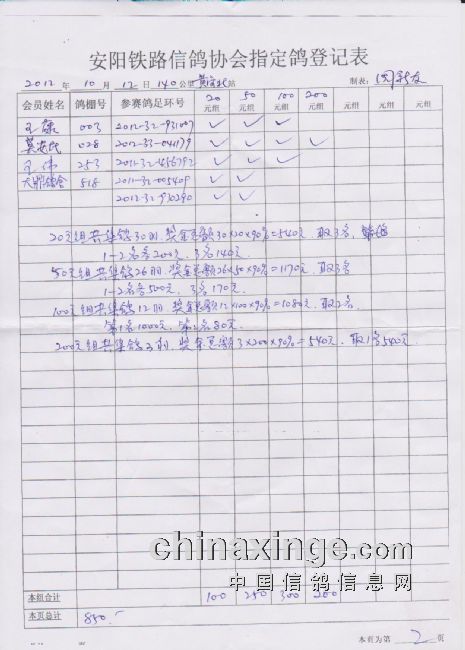 安阳铁路信鸽协会指定鸽登记表
2012 年 10 月 12 日 140公里 站 制表:
会员姓名 鸽棚号 参赛鸽足环号 20元组 50元组 100元组 200元组 元组 元组 元组
003 2012-32-931007 ✓ ✓ ✓
028 2012-33-041179 ✓ ✓ ✓ ✓
王伟 253 2012-32-456792 ✓ ✓ ✓
大鼎鸽舍 518 2012-32-005409 ✓ ✓
2012-32-930290 ✓ ✓
20元组共集鸽30羽,奖金总额30×20×90%=540元,取3名,
1-2名各200元,3名140元
50元组共集鸽26羽,奖金总额26×50×90%=1170元,取3名
1-2名各500元,3名170元
100元组共集鸽12羽,奖金总额12×100×90%=1080元,取2名
第1名1000元,第2名80元
200元组共集鸽3羽,奖金总额3×200×90%=540元,取1名540元
chinaxinge.com
中国信鸽信息网
本组合计 100 250 300 200
本页总计 850.-
本页为第 2 页